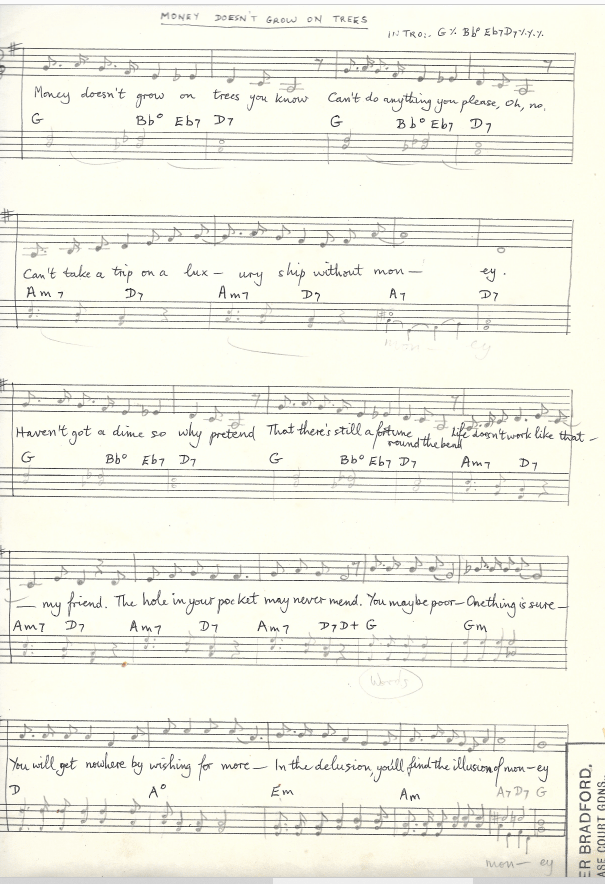 MONEY DOESN'T GROW ON TREES
INTRO:. G ٪ Bb° Eb7 D7 ٪ ٪ ٪
Money doesn't grow on trees you know Can't do anything you please, Oh, no.
G Bb° Eb7 D7 G Bb° Eb7 D7
Can't take a trip on a lux – ury ship without mon – ey.
Am7 D7 Am7 D7 A7 D7
mon – ey
Haven't got a dime so why pretend That there's still a fortune round the bend Life doesn't work like that –
G Bb° Eb7 D7 G Bb° Eb7 D7 Am7 D7
— my friend. The hole in your pocket may never mend. You may be poor – One thing is sure –
Am7 D7 Am7 D7 Am7 D7 D+ G Gm
Words
You will get nowhere by wishing for more – In the delusion, you'll find the illusion of mon – ey
D A° Em Am A7 D7 G
mon – ey
ER BRADFORD.
ASE COURT GDNS.